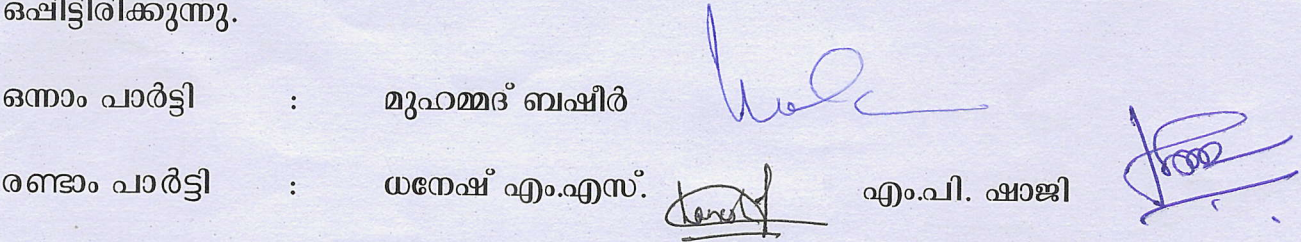 ഒപ്പിട്ടിരിക്കുന്നു.
ഒന്നാം പാർട്ടി : മുഹമ്മദ് ബഷീർ
രണ്ടാം പാർട്ടി : ധനേഷ് എം.എസ്. എം.പി. ഷാജി